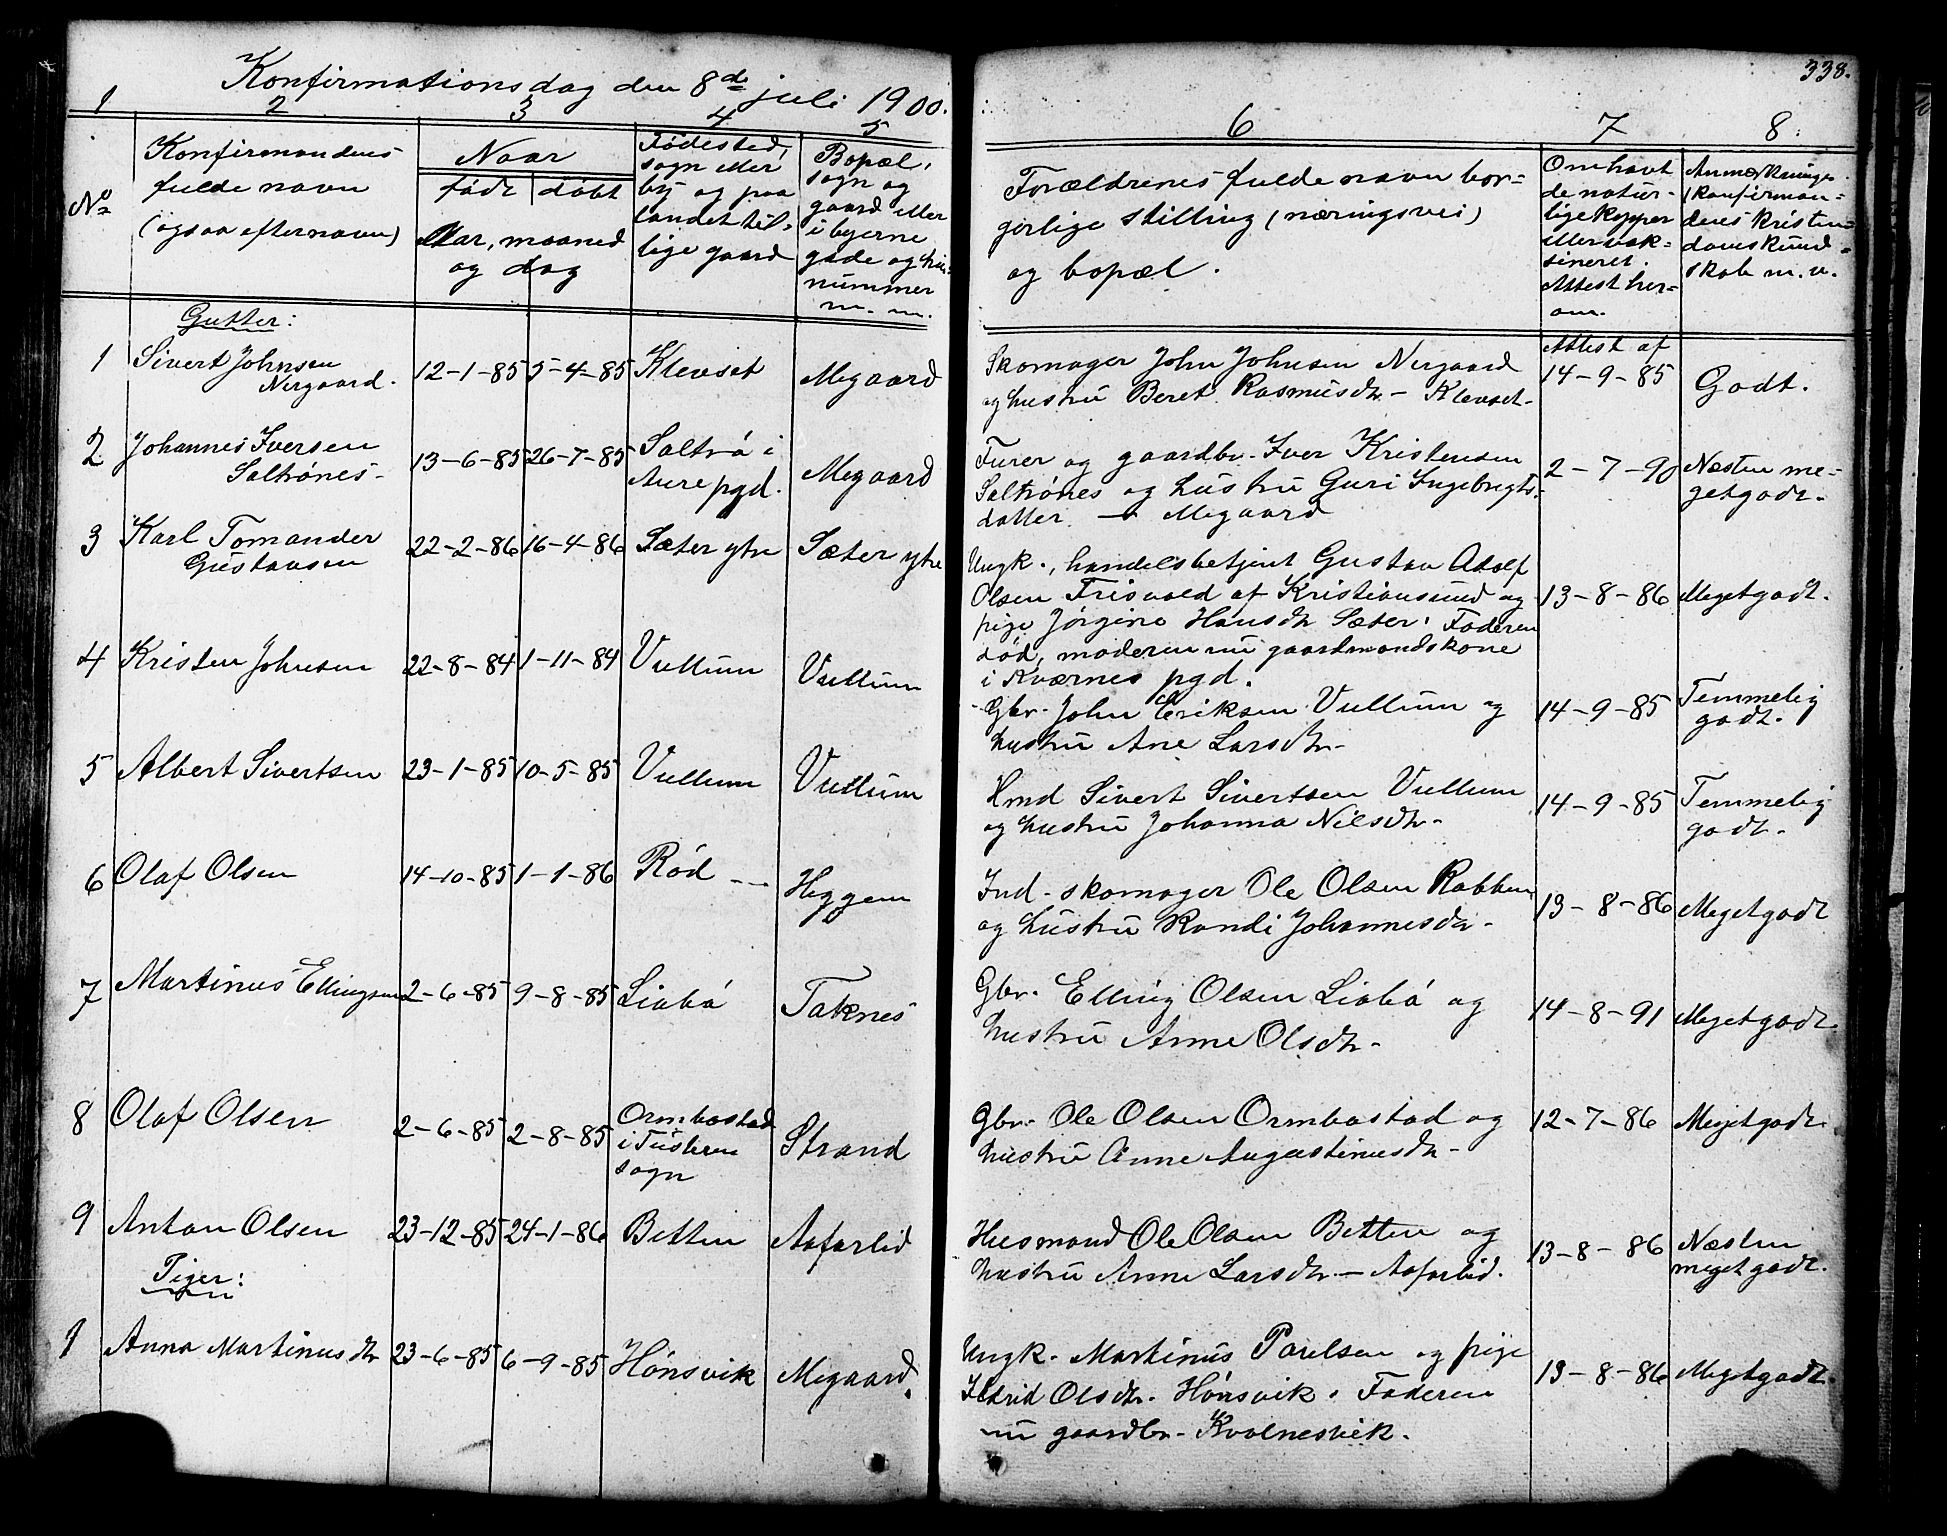 338.
Konfirmationsdag den 8de juli 1900.
1 2 3 4 5 6 7 8:
No
Konfirmandens
fulde navn
(ogsaa efternavn)
Naar
født døbt
Aar, maaned
og dag
Fødested,
sogn eller
by og paa
landet til-
lige gaard
Bopæl,
sogn og
gaard eller
i byerne
gade og hus-
nummer
m. m.
Forældrenes fulde navn bor-
gerlige stilling (næringsvei)
og bopæl.
Om havt
de natur-
lige kopper
eller vak-
sineret.
Attest her-
om.
Anmærkninger
(konfirman-
dens kristen-
domskund-
skab m. v.
Gutter:
1 Sivert Johnsen
Nergaard.
12-1-85 5-4-85 Klevset Megaard
Skomager John Johnsen Nergaard
og hustru Beret Rasmusdtr - Klevset-
Attest af
14-9-85 Godt.
2 Johannes Iversen
Saltrønes-
13-6-85 26-7-85 Saltrø i
Aure pgd.
Megaard
Furer og gaardbr. Iver Kristensen
Saltrønes og hustru Guri Ingebrigts-
datter - Megaard
2-7-90 Næsten me-
getgodt.
3 Karl Tomander
Gustavsen
22-2-86 16-4-86 Sæter ytre Sæter ytre
Ungk., handelsbetjent Gustav Adolf
Olsen Frisvold af Kristiansund og
pige Jørgine Hansdtr Sæter. Faderen
død, moderen nu gaardmandskone
i Kværnes pgd.
13-8-86 Megetgodt.
4 Kristen Johnsen 22-8-84 1-11-84 Vullum Vullum
Gbr. John Eriksen Vullum og
hustru Ane Larsdtr-
14-9-85 Temmelig
godt.
5 Albert Sivertsen 23-1-85 10-5-85 Vullum Vullum
Hmd Sivert Sivertsen Vullum
og hustru Johanna Nilsdtr-
14-9-85 Temmelig
godt.
6 Olaf Olsen 14-10-85 1-1-86 Rød -- Heggem
Ind- skomager Ole Olsen Rabben
og hustru Randi Johannesdtr -
13-8-86 Megetgodt
7 Martinus Ellingsen 2-6-85 9-8-85 Liabø Taknes
Gbr. Elling Olsen Liabø og
hustru Anne Olsdtr-
14-8-91 Megetgodt.
8 Olaf Olsen 2-6-85 2-8-85 Ormbostad
i Tusteren
sogn
Strand
Gbr. Ole Olsen Ormbostad og
hustru Anne Augustinusdtr -
12-7-86 Megetgodt.
9 Anton Olsen 23-12-85 24-1-86 Betten Aafarlid
Husmand Ole Olsen Betten og
hustru Anne Larsdtr - Aafarlid.
13-8-86 Næsten
meget godt.
Piger:
1 Anna Martinusdtr 23-6-85 6-9-85 Hønsvik Megaard.
Ungk. Martinus Paulsen og pige
Olsdtr. Hønsvik. Faderen
nu gaardbr. Kvalnesvik.
13-8-86 Megetgodt.